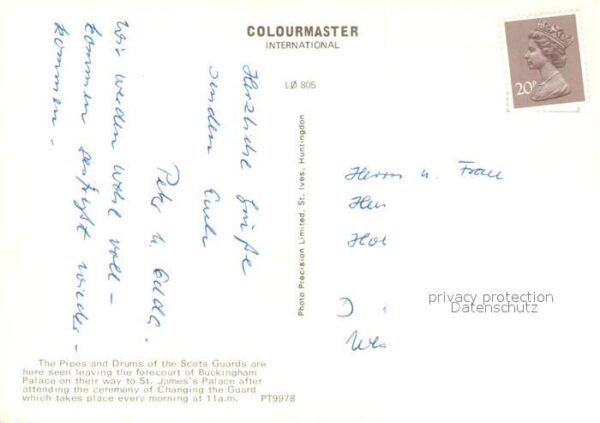 COLOURMASTER
INTERNATIONAL
LØ 805
20P
Herzliche Grüße
senden Euch
Peter u. Edda.
Wir werden wohl voll-
kommen
wieder-
kommen.
Photo Precision Limited, St. Ives, Huntingdon
Herrn u. Frau
privacy protection
Datenschutz
The Pipes and Drums of the Scots Guards are
here seen leaving the forecourt of Buckingham
Palace on their way to St. James's Palace after
attending the ceremony of Changing the Guard
which takes place every morning at 11a.m.
PT9978